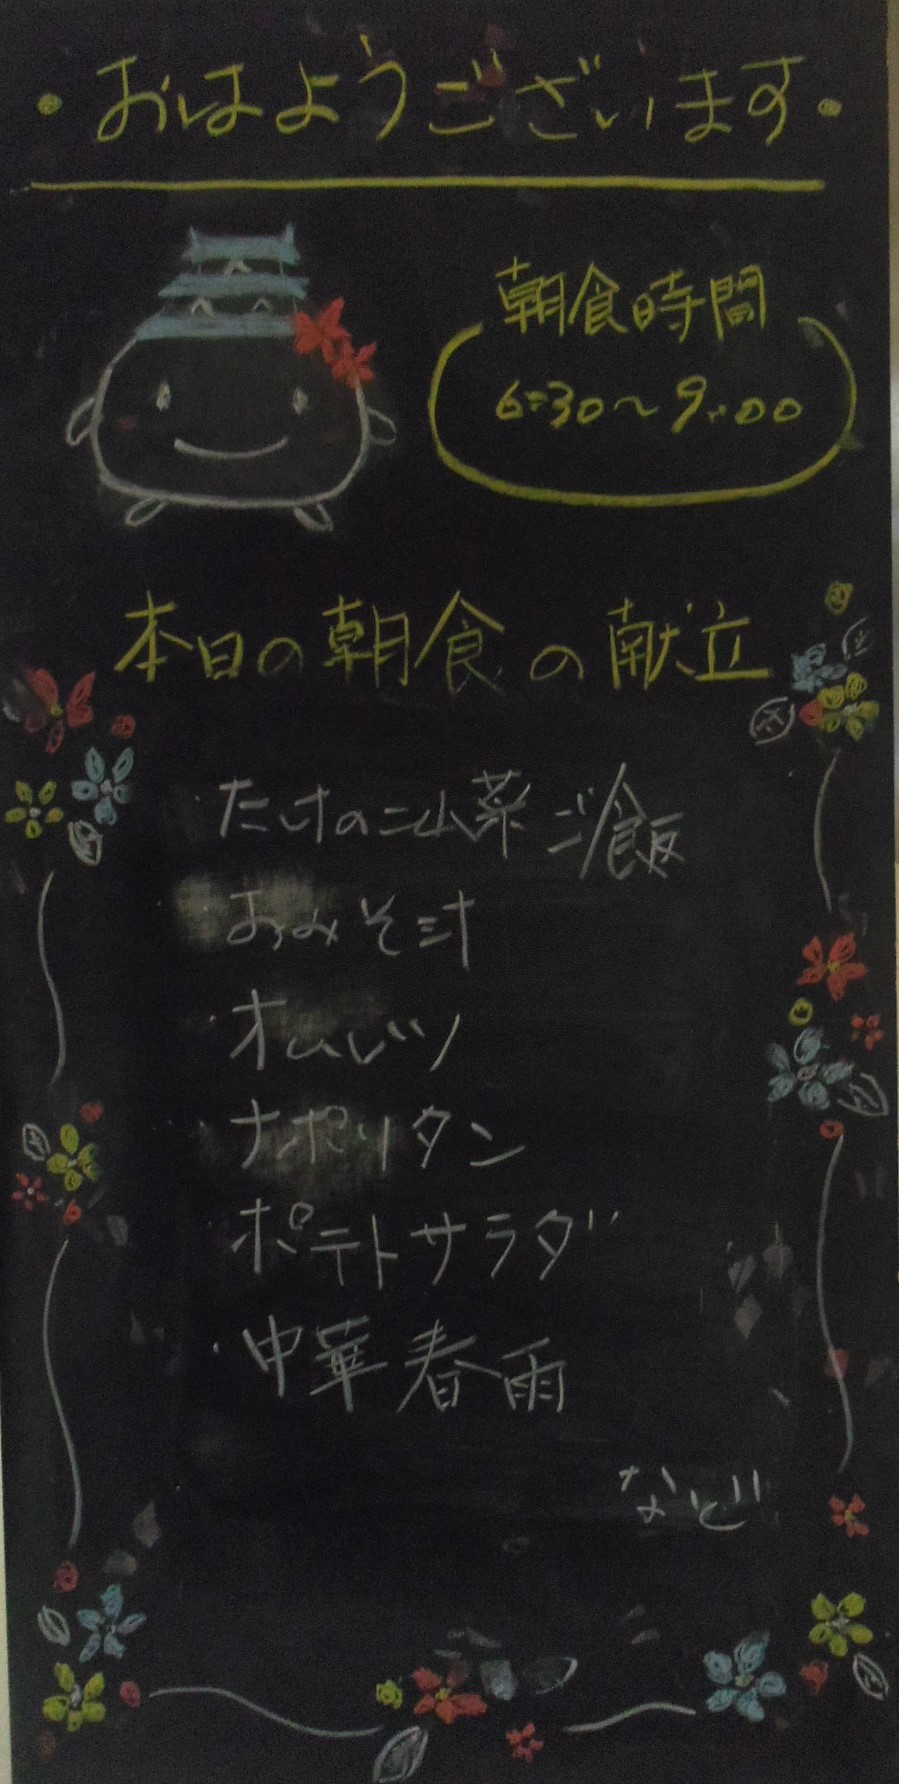 ・おはようございます・
朝食時間
6:30～9:00
本日の朝食の献立
・たけのこ山菜ご飯
・おみそ汁
・オムレツ
・ナポリタン
・ポテトサラダ
・中華春雨
など